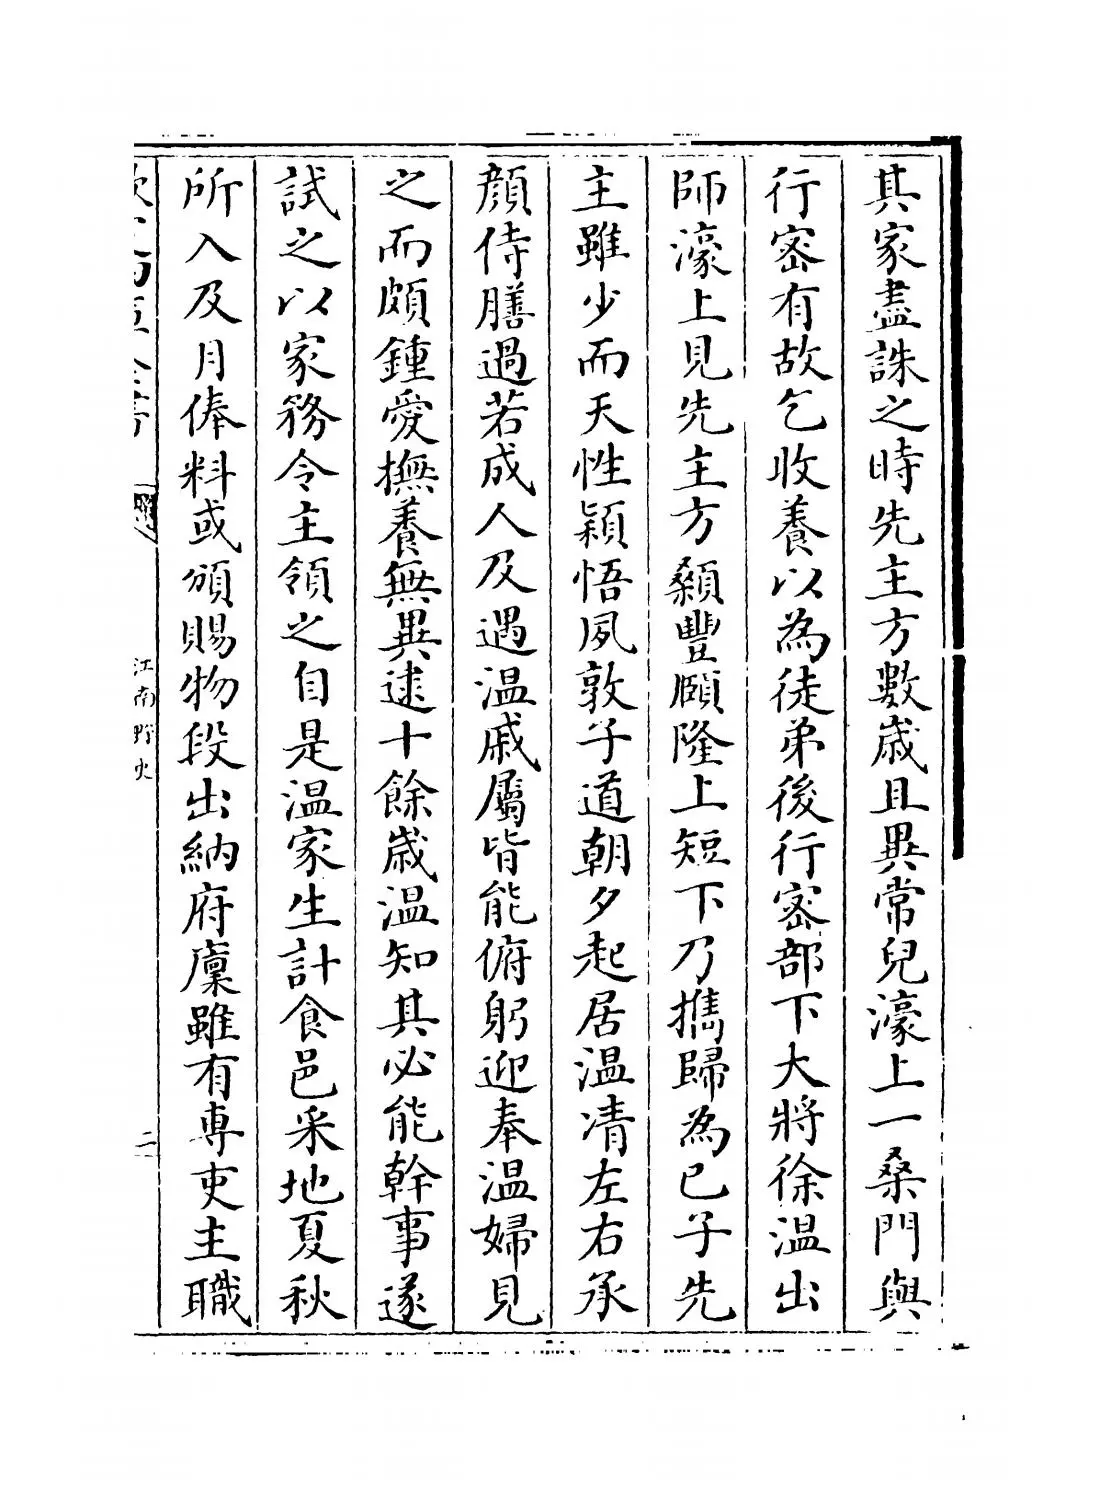 其家盡誅之時先主方數歳且異常兒濠上一桑門與
行宻有故乞收養以為徒弟後行宻部下大將徐温出
師濠上見先主方顙豐頤隆上短下乃擕歸為已子先
主雖少而天性頴悟夙敦子道朝夕起居温凊左右承
顔侍膳過若成人及遇温戚屬皆能俯躬迎奉温婦見
之而頗鍾愛撫養無異逮十餘歳温知其必能幹事遂
試之以家務令主領之自是温家生計食邑采地夏秋
所入及月俸料或頒賜物段出納府廩雖有專吏主職
江南野史
二